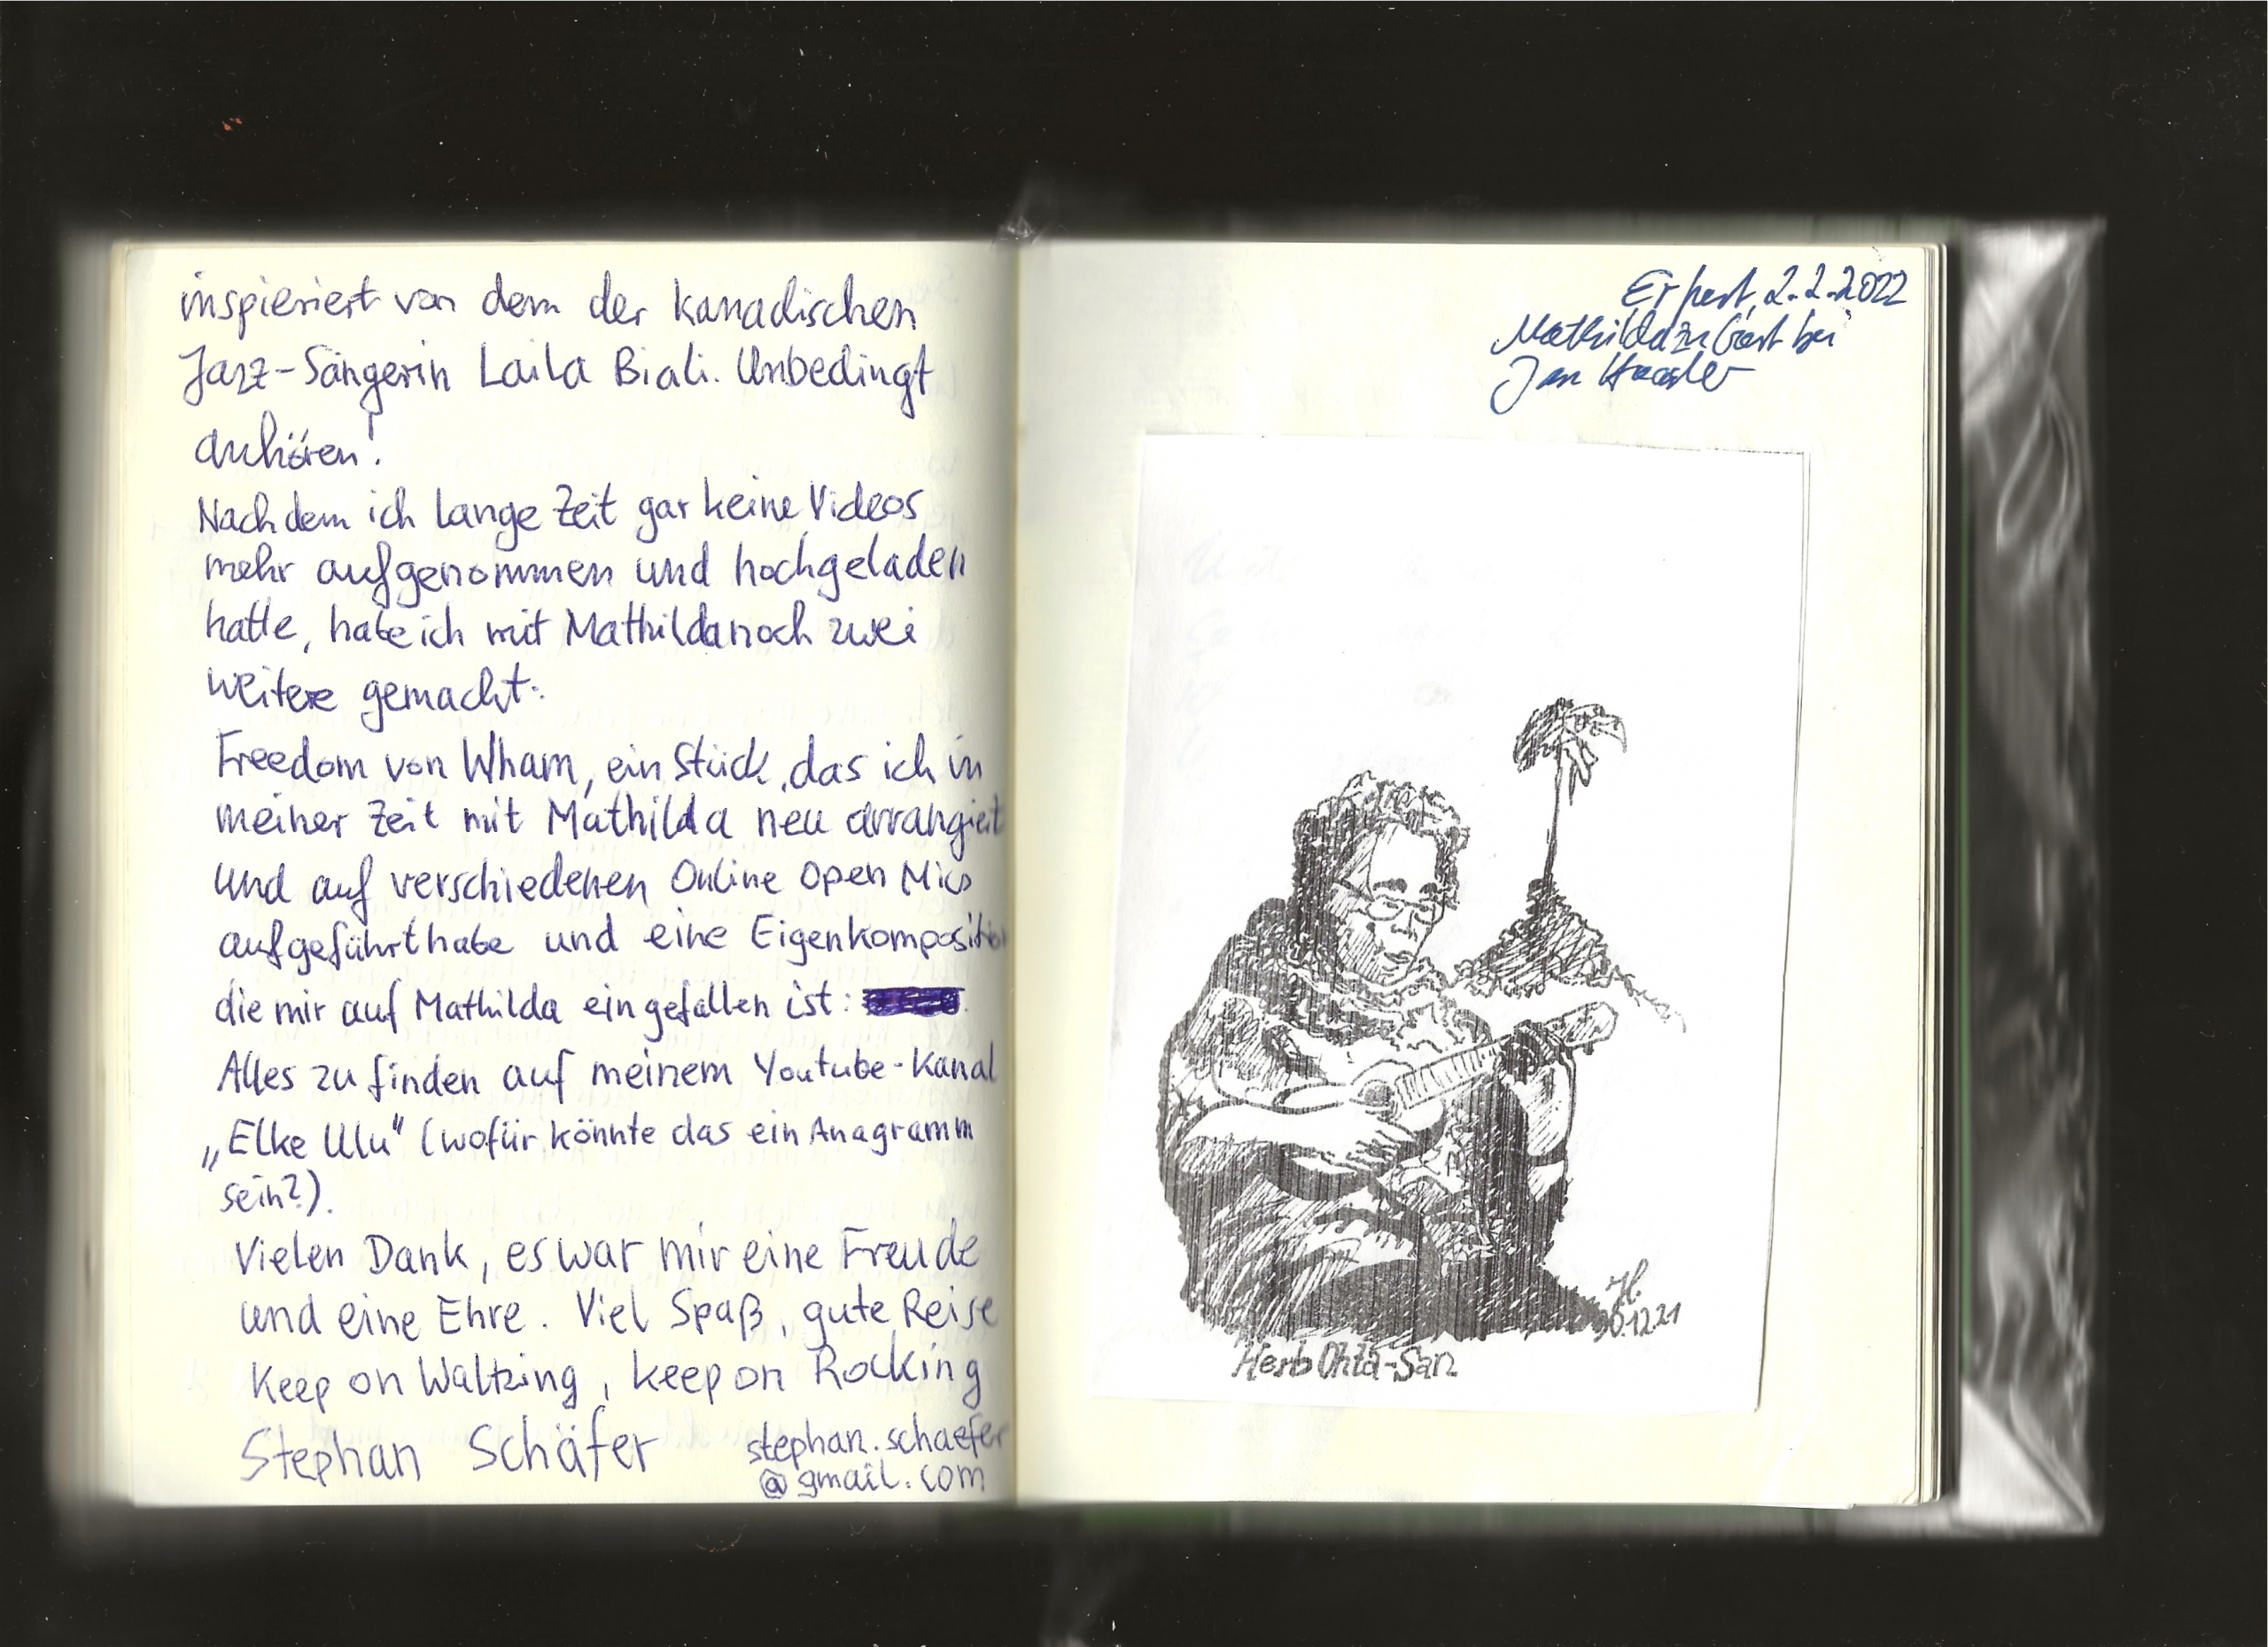 inspieriert von dem der kanadischen
Jazz-Sängerin Laila Biali. Unbedingt
anhören!
Nachdem ich lange Zeit gar keine Videos
mehr aufgenommen und hochgeladen
hatte, habe ich mit Mathilda noch zwei
weitere gemacht:
Freedom von Wham, ein Stück, das ich in
meiner Zeit mit Mathilda neu arrangiert
und auf verschiedenen Online Open Mics
aufgeführt habe und eine Eigenkomposition
die mir auf Mathilda eingefallen ist:
Alles zu finden auf meinem Youtube-Kanal
„Elke Ulu“ (wofür könnte das ein Anagramm
sein?).
Vielen Dank, es war mir eine Freude
und eine Ehre. Viel Spaß, gute Reise
Keep on Waltzing, keep on Rocking
Stephan Schäfer
stephan.schaefer
@gmail.com
Erfurt, 2.2.2022
Mathilda zu Gast bei
Jan
H.
30.12.21
Herb Ohta-San